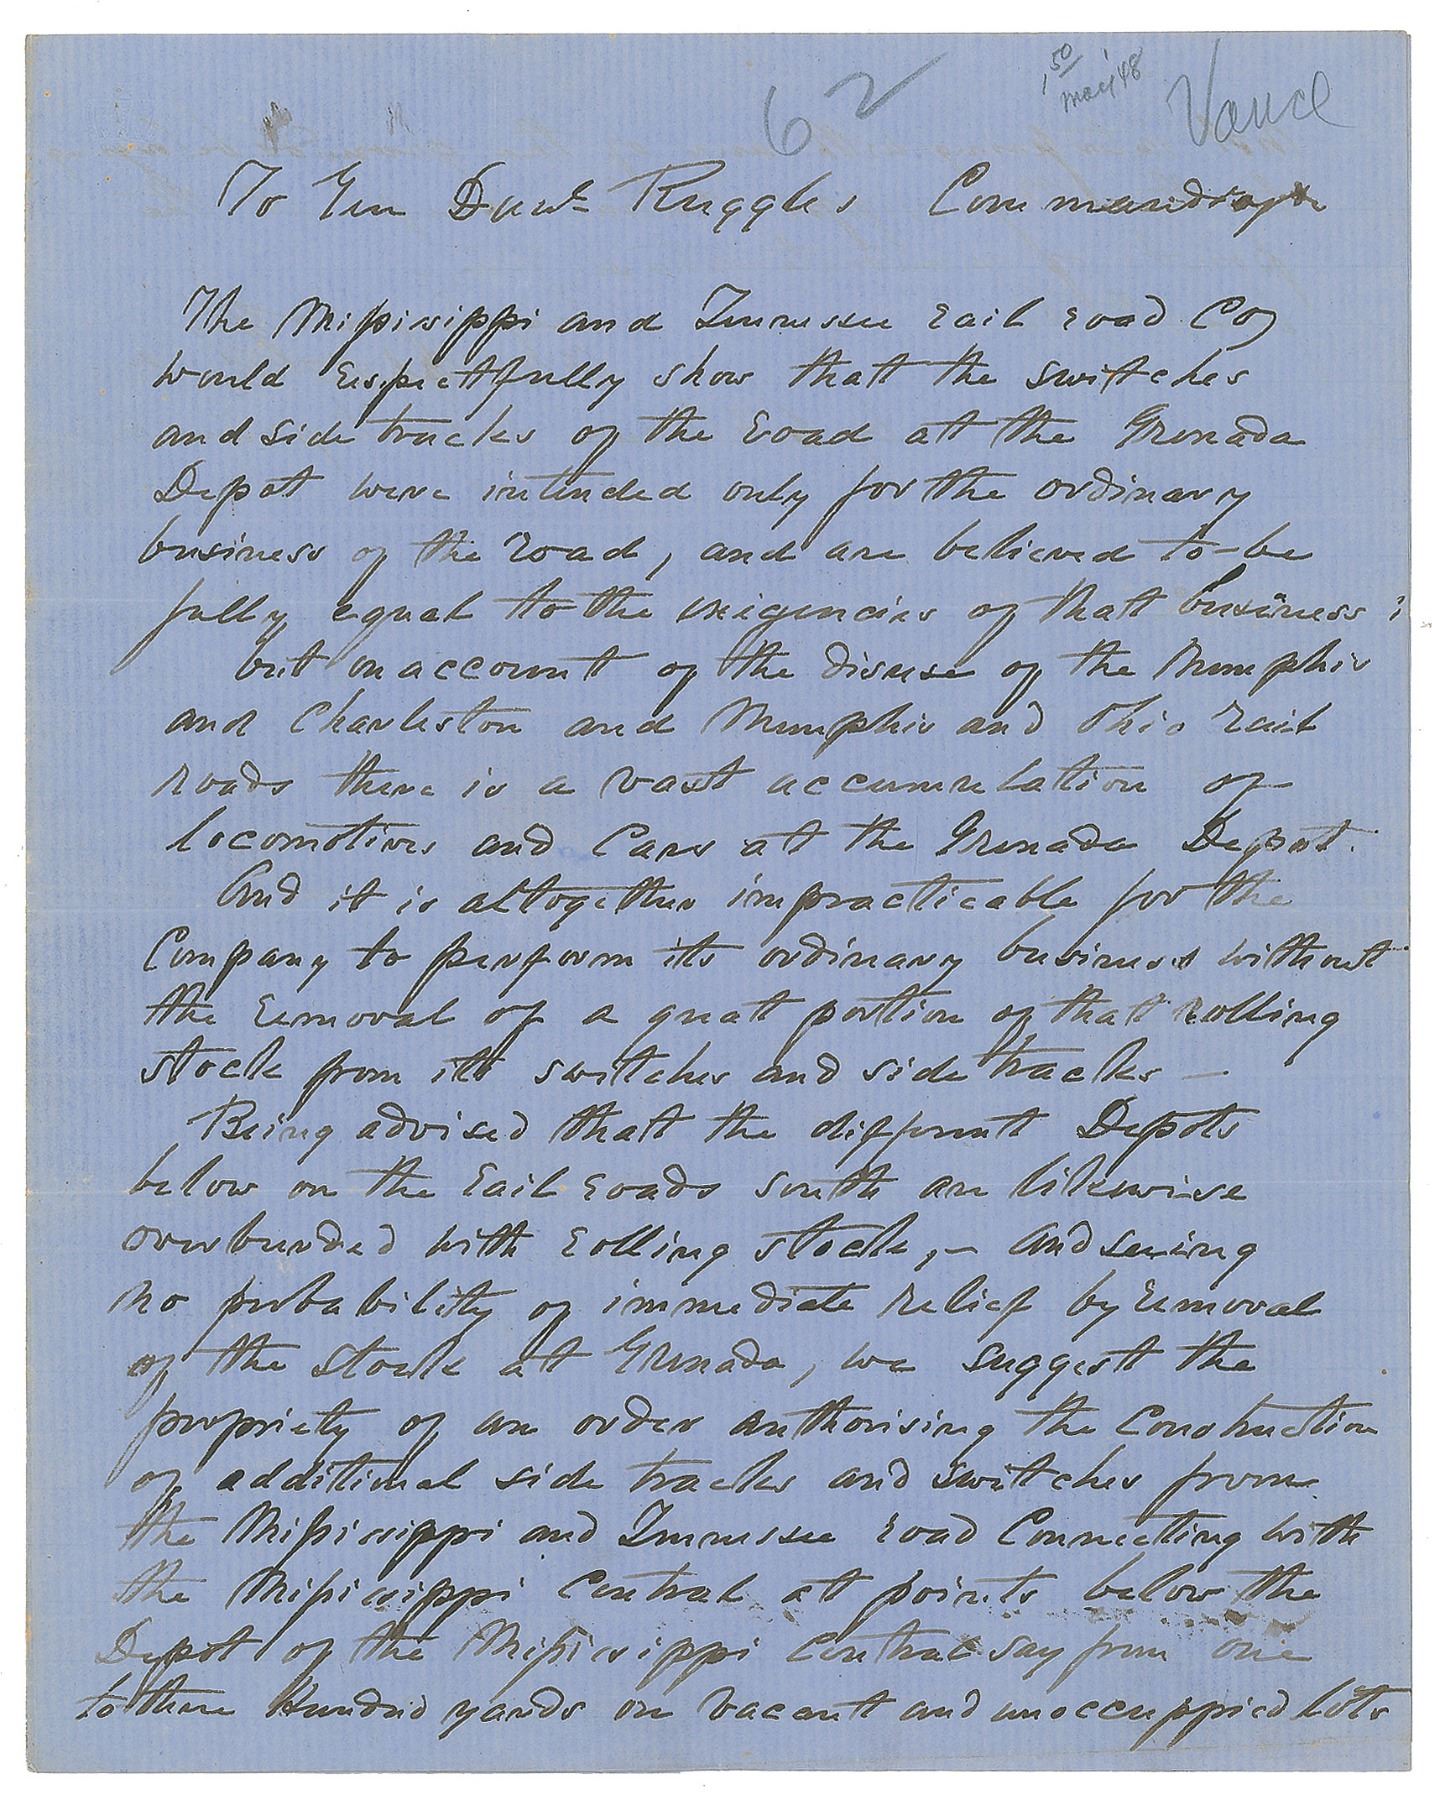 62
1 50
may '48
Vance
To Gen Danl Ruggles Commanding
The Missisippi and Tennessee rail road Coy
would respectfully show that the switches
and side tracks of the road at the Grenada
Depot were intended only for the ordinary
business of the road, and are believed to be
fully equal to the exigencies of that business ;
but on account of the disuse of the Memphis
and Charleston and Memphis and Ohio rail
roads there is a vast accumulation of
locomotives and Cars at the Grenada Depot.
And it is altogether impracticable for the
Company to perform its ordinary business without
the removal of a great portion of that rolling
stock from its switches and side tracks —
Being advised that the different Depots
below on the rail roads south are likewise
overburded with rolling stock, — and seeing
no probability of immediate relief by removal
of the stock at Grenada, we suggest the
propriety of an order authorising the Construction
of additional side tracks and switches from
the Missisippi and Tennessee road Connecting with
the Missisippi Central at points below the
Depot of the Missisippi Central say from one
to three Hundred yards on vacant and unoccuppied lots